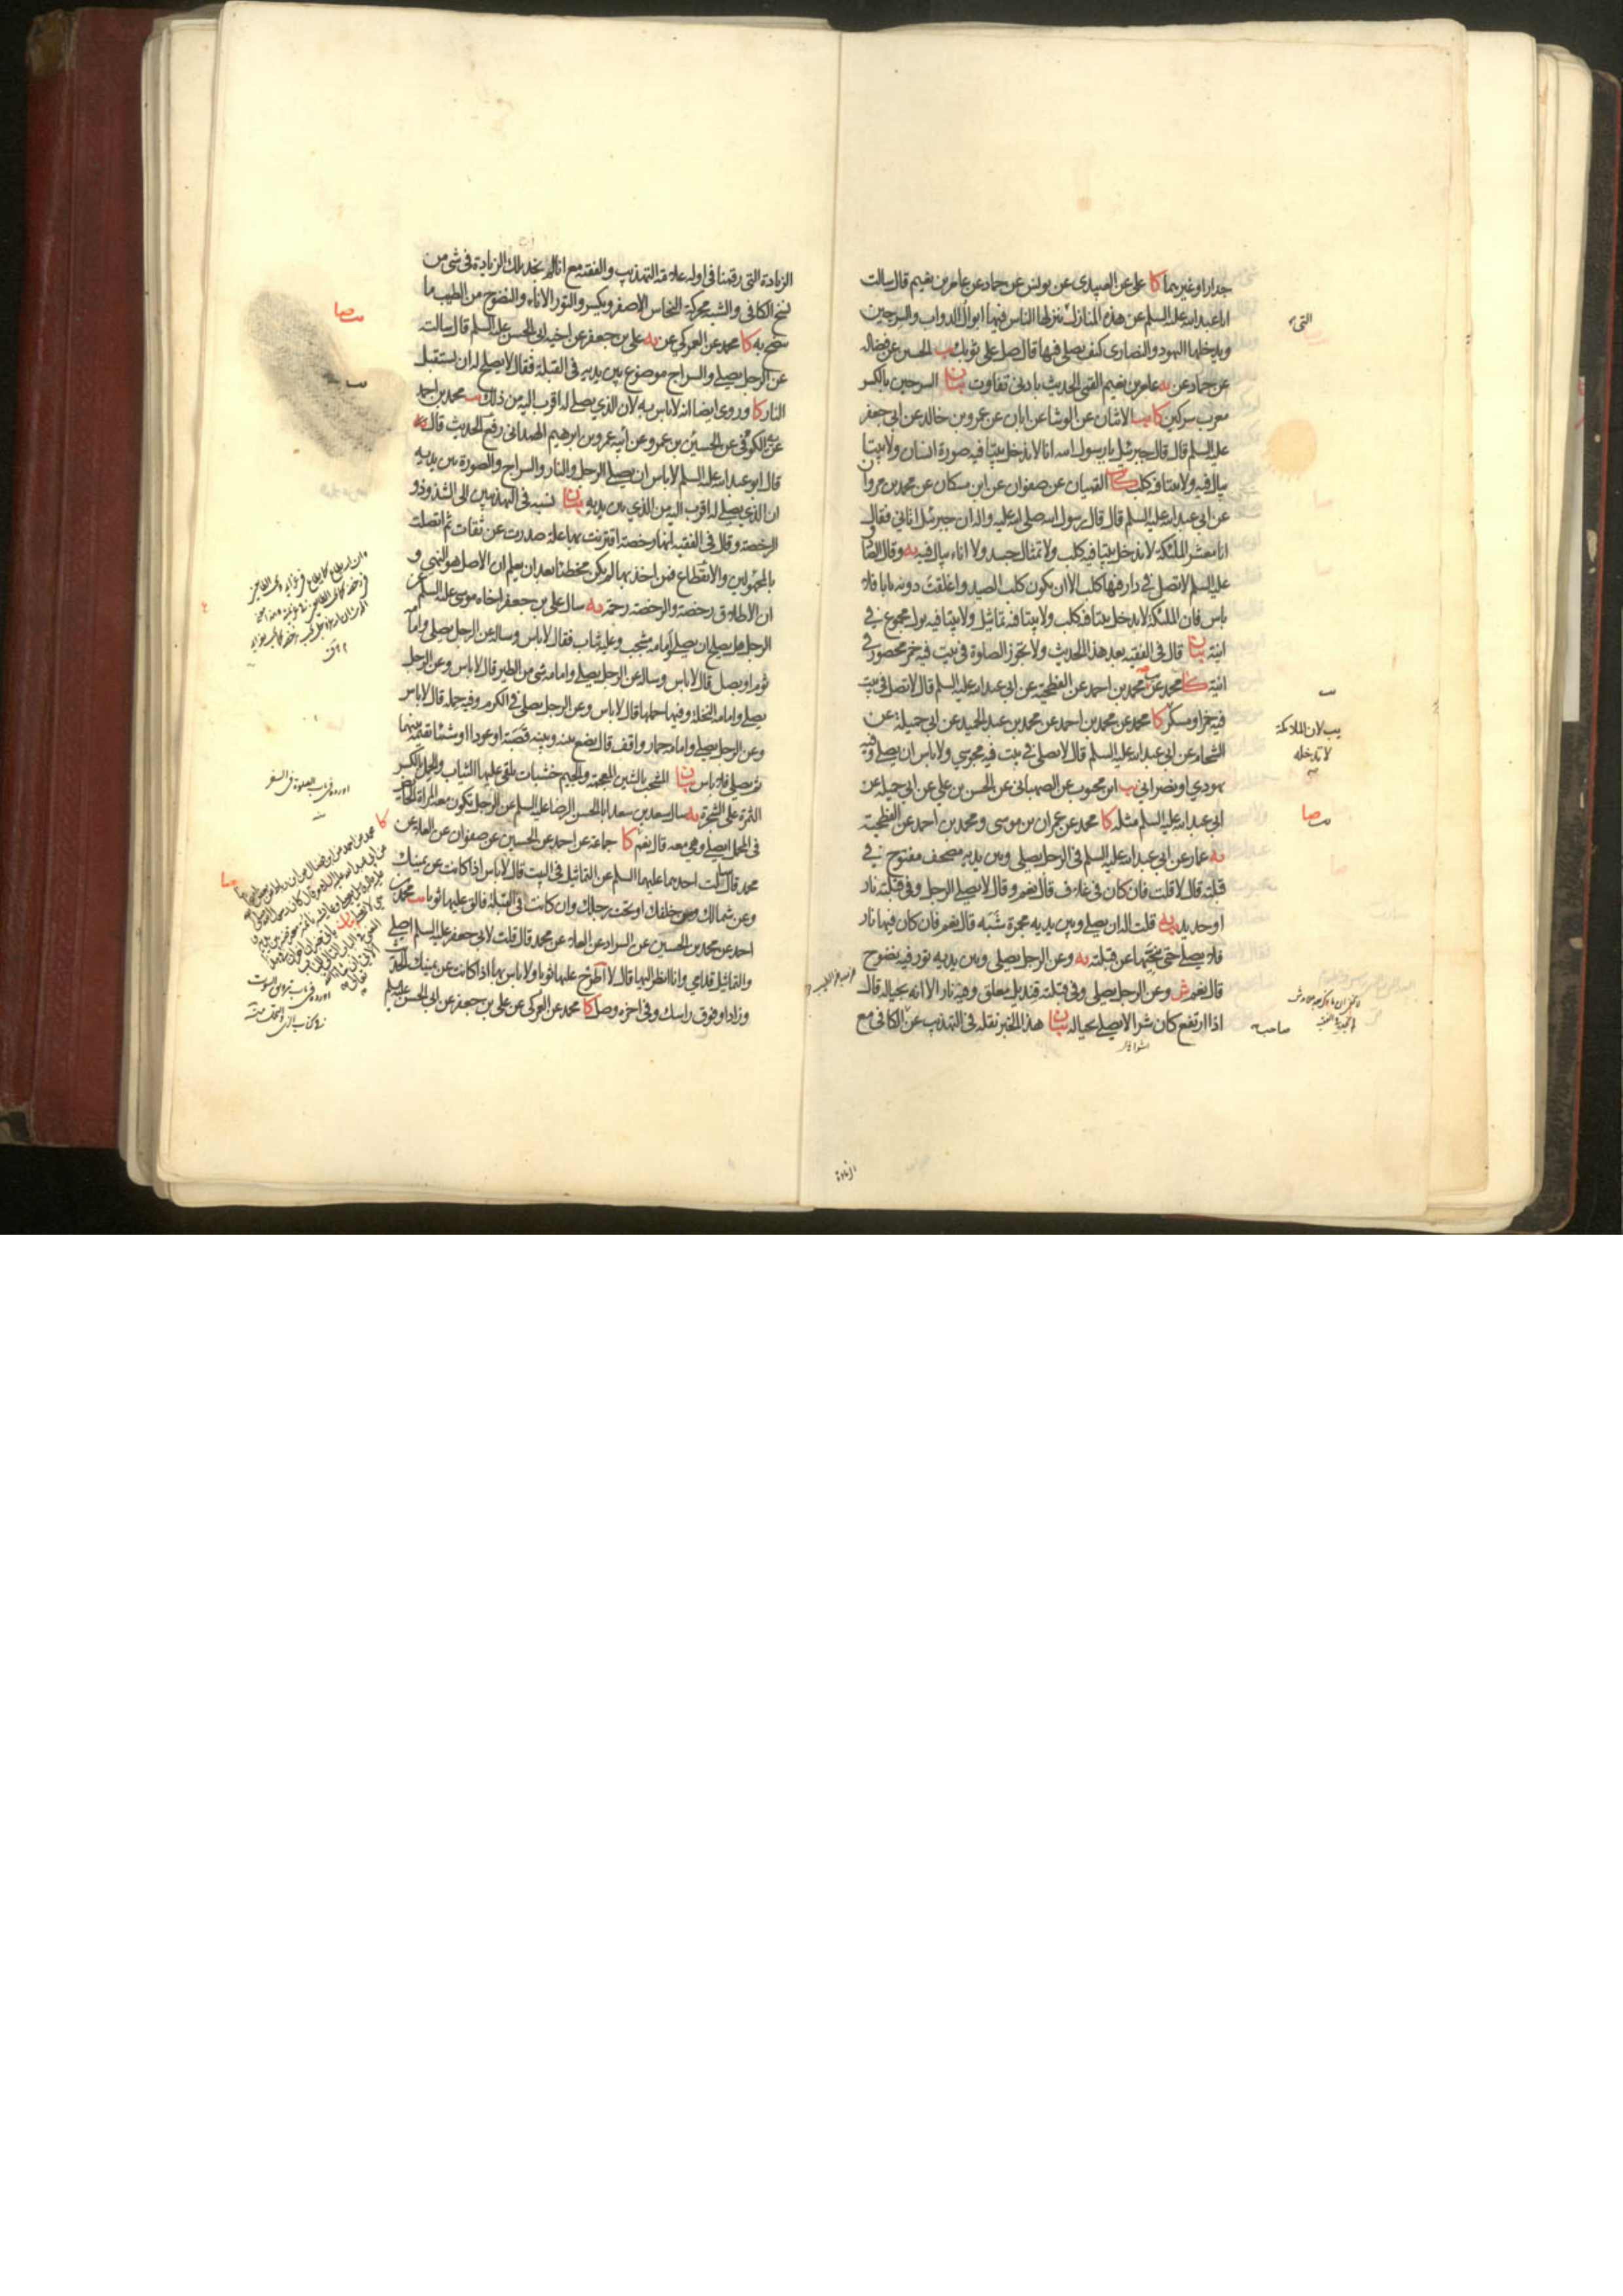 جدارا وغيرهما كا على عن العبيدى عن يونس عن حماد عن عامر بن نعيم قال سالت
ابا عبدالله عليه السلم عن هذه المنازل ينزلها الناس فيها ابوال الدواب والسرجين
ويدخلها اليهود والنصارى كيف يصلى فيها قال صل على ثوبك يب الحسين عن فضالة
عن حماد عن عامر بن نعيم القمى الحديث بادنى تفاوت بيان السرجين بالكسر
معرب سركين كا يب الاثنان عن الوشا عن ابان عن عمرو بن خالد عن ابى جعفر
عليه السلم قال قال جبرئيل يا رسول الله انا لا ندخل بيتا فيه صورة انسان ولا بيتا
يبال فيه ولا بيتا فيه كلب كا القميان عن صفوان عن ابن مسكان عن محمد بن مروان
عن ابى عبدالله عليه السلم قال قال رسول الله صلى الله عليه واله ان جبرئيل اتانى فقال
انا معشر الملئكة لا ندخل بيتا فيه كلب ولا تمثال جسد ولا اناء يبال فيه يه وقال الصا
عليه السلم لا تصل فى دار فيها كلب الا ان يكون كلب الصيد واغلقت دونه بابا فلا
باس فان الملئكة لا تدخل بيتا فيه كلب ولا بيتا فيه تماثيل ولا بيتا فيه بول مجموع فى
انية بيان قال فى الفقيه بعد هذا الحديث ولا تجوز الصلوة فى بيت فيه خمر محصور فى
انية كا محمد عن محمد بن احمد عن الفطحية عن ابى عبدالله عليه السلم قال لا تصل فى بيت
فيه خمر او مسكر كا محمد عن محمد بن احمد عن محمد بن عبد الحميد عن ابى جميلة عن
الشحام عن ابى عبدالله عليه السلم قال لا تصلى فى بيت فيه مجوسي ولا باس ان يصلى وفيه
يهودي او نصرانى يب ابن محبوب عن الصهبانى عن الحسن بن علي عن ابى جميلة عن
ابى عبدالله عليه السلم مثله كا محمد عن عمران بن موسى ومحمد بن احمد عن الفطحية
يه عمار عن ابى عبدالله عليه السلم فى الرجل يصلى وبين يديه مصحف مفتوح فى
قبلته قال لا قلت فان كان فى غلاف قال نعم وقال لا يصلى الرجل وفى قبلته نار
او حديد يه قلت اله ان يصلى وبين يديه مجمرة شبه قال نعم فان كان فيها نار
فلا يصلى حتى ينحيها عن قبلته يه وعن الرجل يصلى وبين يديه تور فيه نضوح
قال نعم ش وعن الرجل يصلى وفى قبلته قنديل معلق وفيه نار الا انه بحياله قال
اذا ارتفع كان شرا لا يصلى بحياله بيان هذا الخبر نقله فى التهذيب عن الكافى مع
صاحب
يب لان الملائكة
لا تدخله
صا
الزيادة
الزيادة التى رقمنا فى اوله علامة التهذيب والفقيه مع انا لم نجد تلك الزيادة فى شئ من
نسخ الكافى والشبه محركة النحاس الاصفر ويكسر والتور الاناء والنضوح من الطيب ما
ينضح به كا محمد عن العمركي عن يه على بن جعفر عن اخيه ابى الحسن عليه السلم قال سالته
عن الرجل يصلى والسراج موضوع بين يديه فى القبلة فقال لا يصلح له ان يستقبل
النار كا وروى ايضا انه لا باس به لان الذي يصلى له اقرب اليه من ذلك يب محمد بن احمد
عن الكوفى عن الحسين بن عمرو عن ابيه عمرو بن ابرهيم الهمدانى رفع الحديث قال يه
قال ابو عبدالله عليه السلم لا باس ان يصلى الرجل والنار والسراج والصورة بين يديه
ان الذي يصلى له اقرب اليه من الذي بين يديه بيان نسبه فى التهذيبين الى الشذوذ و
الرخصة وقال فى الفقيه انها رخصة اقترنت بها علة صدرت عن ثقات ثم اتصلت
بالمجهولين والانقطاع فمن اخذ بها لم يكن مخطئا بعد ان يعلم ان الاصل هو النهى و
ان الاطلاق رخصة والرخصة رحمة يه سال على بن جعفر اخاه موسى عليه السلم عن
الرجل هل يصلح ان يصلى وامامه مشجب وعليه ثياب فقال لا باس وساله عن الرجل يصلى وامامه
ثوم او بصل قال لا باس وساله عن الرجل يصلى وامامه شئ من الطير قال لا باس وعن الرجل
يصلى وامامه النخلة وفيها حملها قال لا باس وعن الرجل يصلى فى الكرم وفيه حمله قال لا باس
وعن الرجل يصلى وامامه حمار واقف قال يضع بينه وبينه قصبة او عودا او شيئا يقيمه بينهما
ثم يصلى فلا باس بيان المشجب بالشين المعجمة والجيم خشبات يلقى عليها الثياب والحمل بالكسر
الثمرة على الشجرة يه سال سعد بن سعد ابا الحسن الرضا عليه السلم عن الرجل تكون معه المراة الحائض
فى المحمل ايصلى وهى معه قال نعم كا جماعة عن احمد عن الحسين عن صفوان عن العلاء عن
محمد قال سالت احدهما عليهما السلم عن التماثيل فى البيت قال لا باس اذا كانت عن يمينك
وعن شمالك ومن خلفك او تحت رجلك وان كانت فى القبلة فالق عليها ثوبا يب محمد بن
احمد عن محمد بن الحسين عن السراد عن العلاء عن محمد قال قلت لابى جعفر عليه السلم اصلى
والتماثيل قدامي وانا انظر اليها قال لا اطرح عليها ثوبا ولا باس بها اذا كانت عن يمينك الحديث
وزاد او فوق راسك وفى اخره وصل كا محمد عن العمركي عن علي بن جعفر عن ابى الحسن عليه السلم
صا
اورده فى باب الصلوة فى السفر
كا